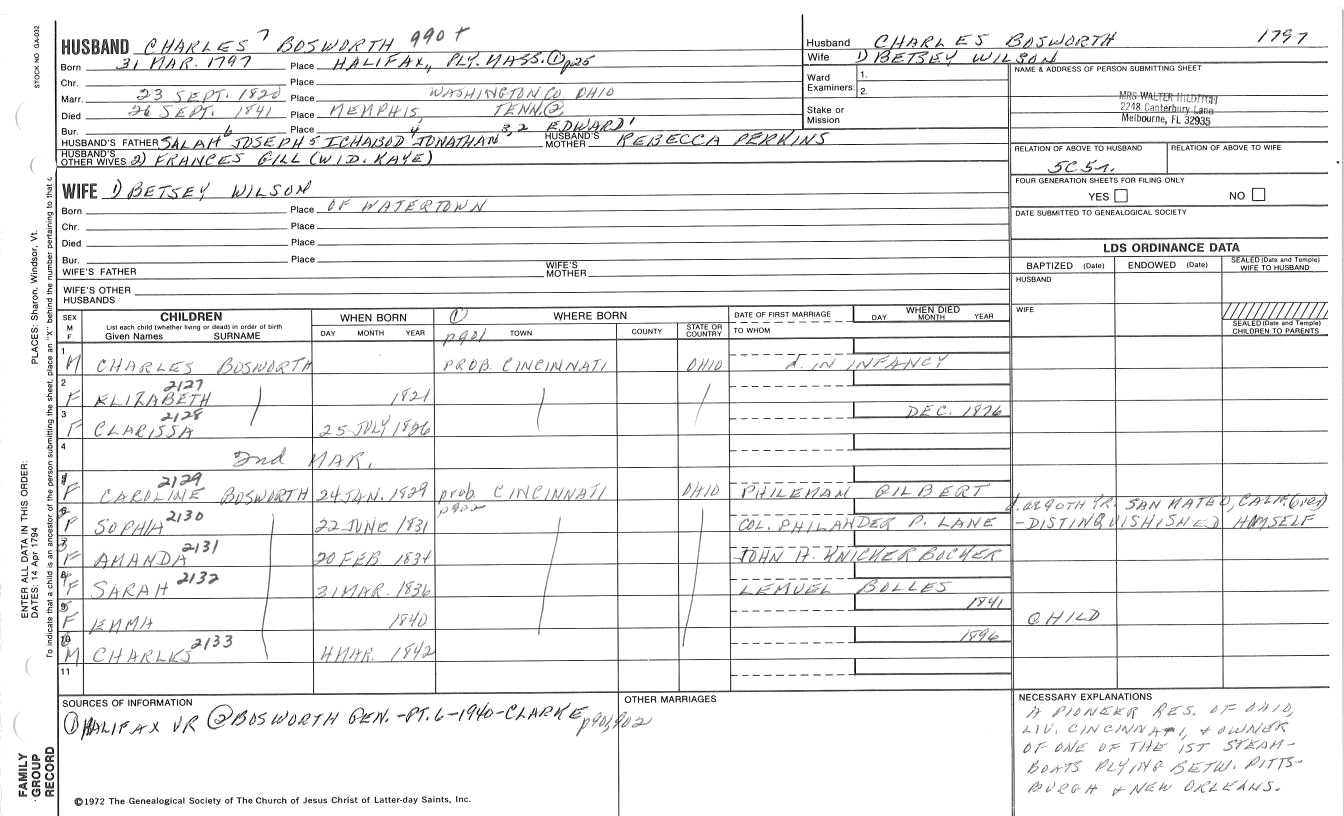 STOCK NO. GA-032
HUSBAND CHARLES 7 BOSWORTH 990+
Born 31 MAR. 1797 Place HALIFAX, PLY. MASS. ① p25
Chr. Place
Marr. 23 SEPT. 1820 Place WASHINGTON CO, OHIO
Died 26 SEPT. 1841 Place MEMPHIS, TENN. ②
Bur. Place
HUSBAND'S FATHER SALAH 6 JOSEPH 5 ICHABOD 4 JONATHAN 3,2 EDWARD 1 HUSBAND'S MOTHER REBECCA PERKINS
HUSBAND'S OTHER WIVES 2) FRANCES GILL (WID. KAYE)
Husband CHARLES BOSWORTH 1797
Wife 1) BETSEY WILSON
Ward Examiners: 1. 2.
Stake or Mission
NAME & ADDRESS OF PERSON SUBMITTING SHEET
MRS WALTER HILDITCH
2248 Canterbury Lane
Melbourne, FL 32935
RELATION OF ABOVE TO HUSBAND RELATION OF ABOVE TO WIFE
5C5r.
FOUR GENERATION SHEETS FOR FILING ONLY
YES NO
DATE SUBMITTED TO GENEALOGICAL SOCIETY
WIFE 1) BETSEY WILSON
Born Place OF WATERTOWN
Chr. Place
Died Place
Bur. Place
WIFE'S FATHER WIFE'S MOTHER
WIFE'S OTHER HUSBANDS
LDS ORDINANCE DATA
BAPTIZED (Date) ENDOWED (Date) SEALED (Date and Temple) WIFE TO HUSBAND
HUSBAND
WIFE
SEALED (Date and Temple) CHILDREN TO PARENTS
SEX M F
CHILDREN
List each child (whether living or dead) in order of birth
Given Names SURNAME
WHEN BORN
DAY MONTH YEAR
① p901
WHERE BORN
TOWN COUNTY STATE OR COUNTRY
DATE OF FIRST MARRIAGE
TO WHOM
WHEN DIED
DAY MONTH YEAR
1 M CHARLES BOSWORTH PROB. CINCINNATI OHIO d. IN INFANCY
2 F ELIZABETH 2127 1821
3 F CLARISSA 2128 25 JULY 1826 DEC. 1876
4 2nd MAR.
1 F CAROLINE 2129 BOSWORTH 24 JAN. 1829 prob. CINCINNATI OHIO PHILEMAN GILBERT d. 02 90TH YR. SAN MATEO, CALIF. (res)
p902
2 F SOPHIA 2130 22 JUNE 1831 COL. PHILANDER P. LANE -DISTINQUISHISHED HIMSELF
3 F AMANDA 2131 20 FEB 1834 JOHN H. KNICHERBOCHER
4 F SARAH 2132 31 MAR. 1836 LEMUEL BOLLES
5 F EMMA 1840 1841 CHILD
10 M CHARLES 2133 4 MAR. 1842 1896
11
SOURCES OF INFORMATION
① HALIFAX VR ② BOSWORTH GEN. -PT. 6-1940-CLARKE p901,902
OTHER MARRIAGES
NECESSARY EXPLANATIONS
A PIONEER RES. OF OHIO,
LIV. CINCINNATI, & OWNER
OF ONE OF THE 1ST STEAM-
BOATS PLYING BETW. PITTS-
BURGH & NEW ORLEANS.
©1972 The Genealogical Society of The Church of Jesus Christ of Latter-day Saints, Inc.
FAMILY GROUP RECORD
ENTER ALL DATA IN THIS ORDER:
DATES: 14 Apr 1794
PLACES: Sharon, Windsor, Vt.
To indicate that a child is an ancestor of the person submitting the sheet, place an "X" behind the number pertaining to that c